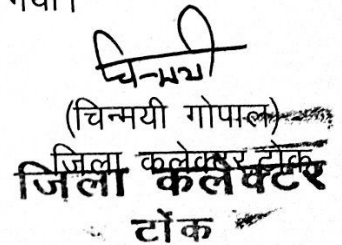 गया।
चिन्मयी
(चिन्मयी गोपाल)
जिला कलेक्टर टोंक
जिला कलेक्टर
टोंक